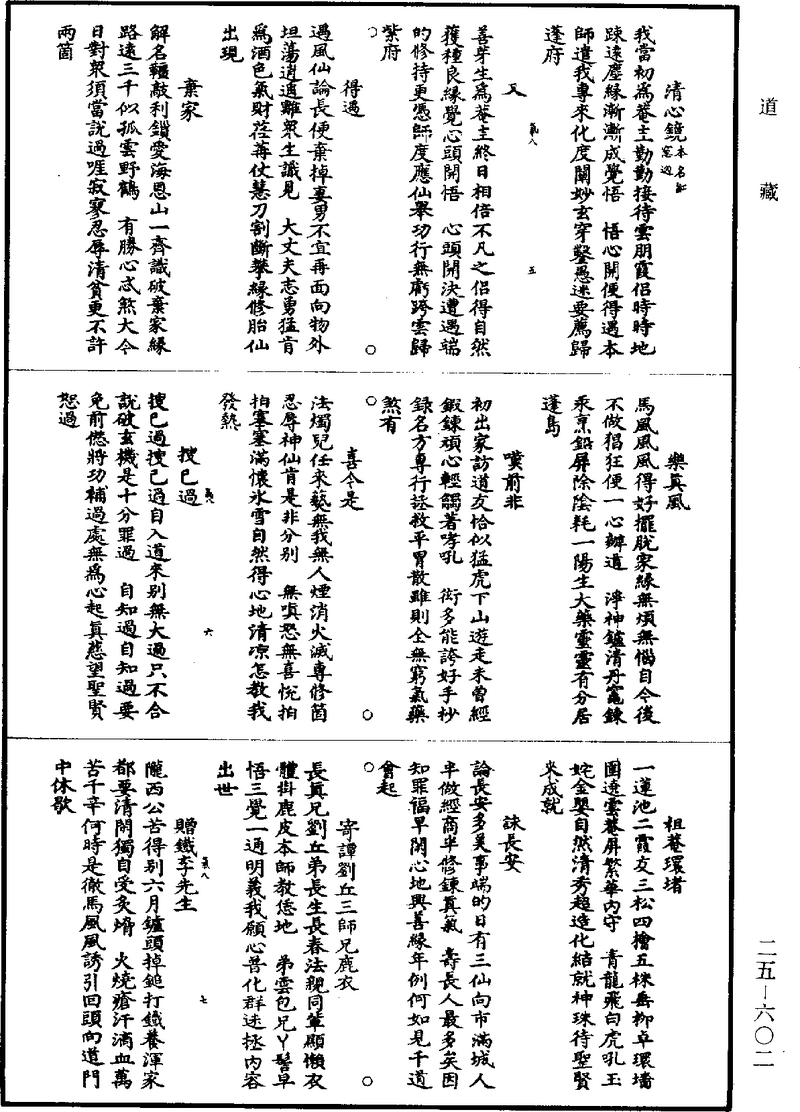 道藏
清心鏡本名紅窓迥
我當初為菴主勤勤接待雲朋霞侶時時地
踈遠塵緣漸漸成覺悟　悟心開便得遇本
師遣我專來化度闡妙玄穿鑿愚迷要薦歸
蓬府
又
善芽生為菴主終日相倍不凡之侶得自然
獲種良緣覺心頭開悟　心頭開決遭遇端
的修持更憑師度應仙舉功行無虧跨雲歸
紫府
得遇
遇風仙論長便棄掉妻男不宜再面向物外
坦蕩逍遙雖衆生識見　大丈夫志勇猛肯
為酒色氣財荏苒仗慧刀割斷攀緣修胎仙
出現
棄家
解名韁敵利鎖愛海恩山一齊識破棄家緣
路遠三千似孤雲野鶴　有勝心忒煞大今
日對衆須當説過啀寂寥忍辱清貧更不許
兩箇
樂真風
馬風風風得好擺脱家緣無煩無惱自今後
不做猖狂便一心辦道　滹神鑪清丹竈鍊
汞烹鉛屏除陰耗一陽生大藥靈靈有分居
蓬島
嘆前非
初出家訪道友恰似猛虎下山遊走未曾經
鍛鍊頑心輕觸著哮吼　衒多能誇好手抄
録名方專行拯救平胃散雖則全無窮氣藥
煞有
喜今是
法燭兒任來藝無我無人煙消火滅專修箇
忍辱神仙肯是非分别　無嗔怒無喜悦拍
拍塞塞滿懷氷雪自然得心地清涼怎教我
發熱
搜己過
搜己過搜己過自入道來别無大過只不合
説破玄機是十分罪過　自知過自知過要
免前愆將功補過處無為心起真慈望聖賢
恕過
祖菴環堵
一蓮池二霞友三松四檜五株垂柳卓環墻
圍遶雲菴屏繁華内守　青龍飛白虎吼玉
姹金嬰自然清秀超造化結就神珠待聖賢
來成就
詠長安
論長安多美事端的日有三仙向市滿城人
半做經商半修鍊真氣　壽長人最多矣因
知罪福早開心地興善緣年例何如見千道
會起
寄譚劉丘三師兄鹿衣
長真兄劉丘弟長生長春法親同輩顯懶衣
體掛鹿皮本師教恁地　弟雲包兄丫髻早
悟三覺一通明義我願心普化群迷拯内容
出世
贈鐵李先生
隴西公苦得别六月鑪頭掉鎚打鐵養渾家
都要清閑獨自受炙㷟　火燒瘡汗滴血萬
苦千辛何時是徹馬風風誘引回頭向道門
中休歇
二五—六〇二